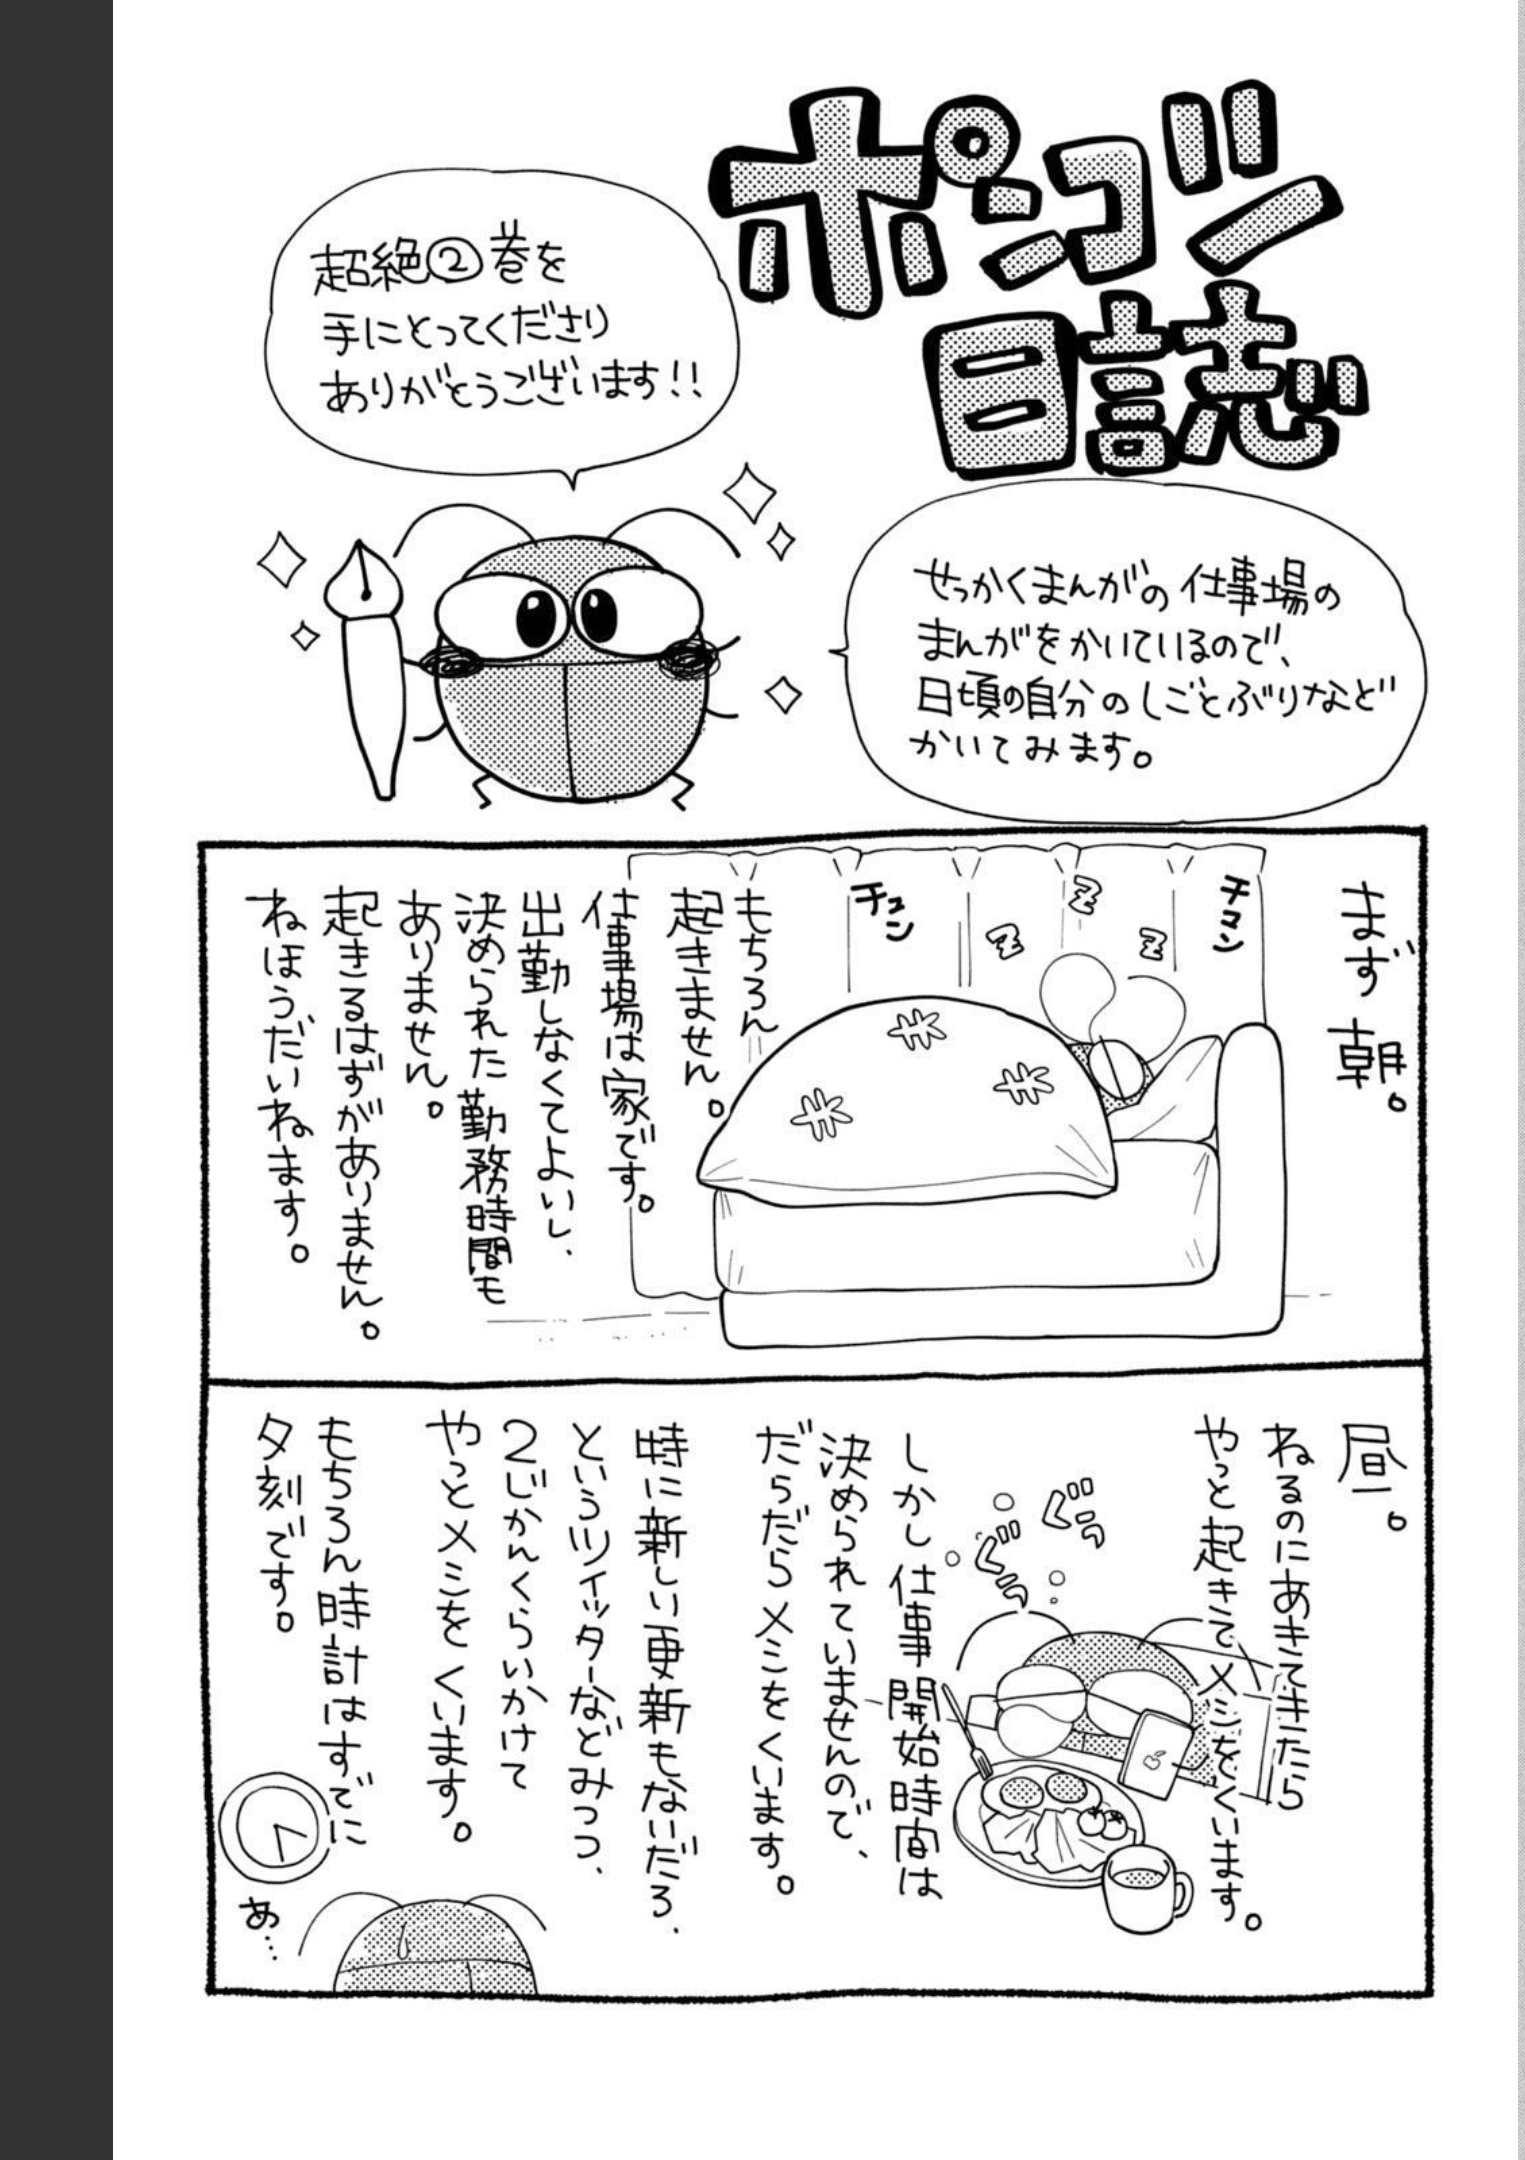 ポンコツ
日誌
超絶②巻を
手にとってくださり
ありがとうございます!!
せっかくまんがの仕事場の
まんがをかいているので、
日頃の自分のしごとぶりなど
かいてみます。
まず朝。
チュン
チュン
z
z
z
もちろん
起きません。
仕事場は家です。
出勤しなくてよいし、
決められた勤務時間も
ありません。
起きるはずがありません。
ねほうだいねます。
昼。
ねるのにあきてきたら
やっと起きてメシをくいます。
ぐぅ
ぐぅ
しかし仕事開始時間は
決められていませんので、
だらだらメシをくいます。
特に新しい更新もないだろ、
というツイッターなどみつつ、
2じかんくらいかけて
やっとメシをくいます。
もちろん時計はすでに
夕刻です。
あ…